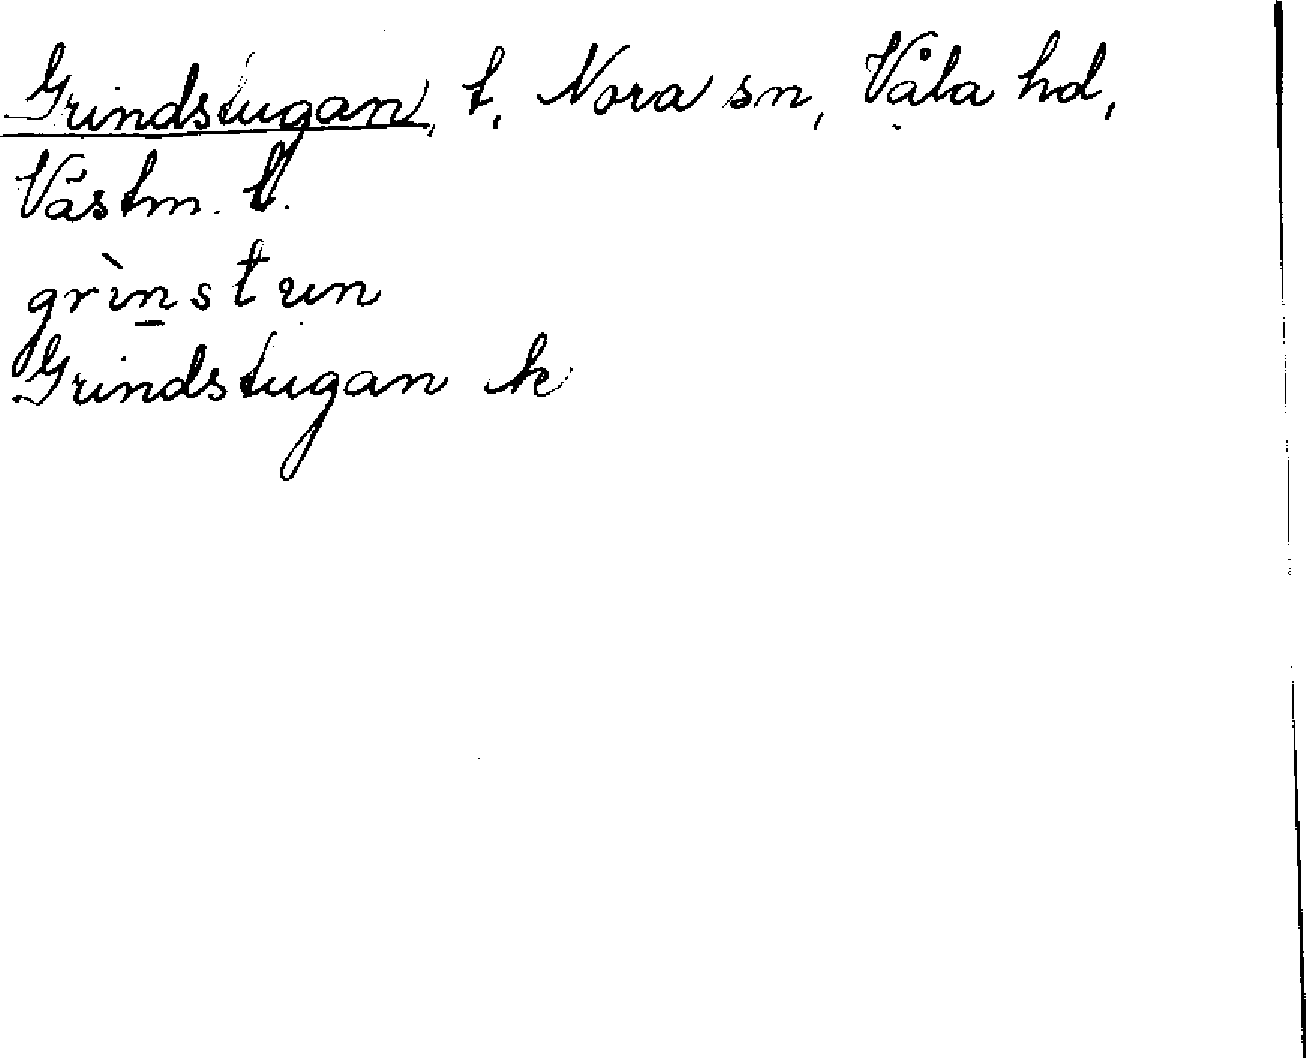 Grindstugan, t, Nora sn, Våla hd,
Västm. l.
grìn̲stun
Grindstugan k